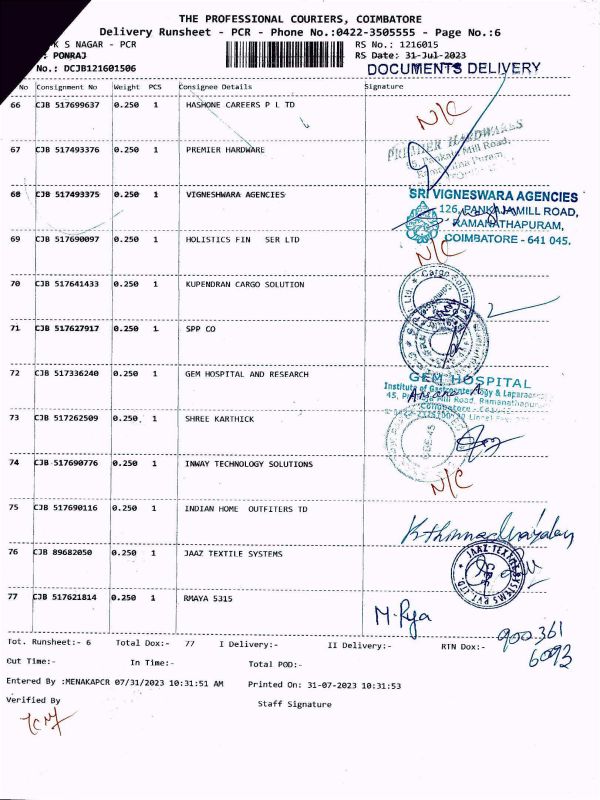 THE PROFESSIONAL COURIERS, COIMBATORE
Delivery Runsheet - PCR - Phone No.:0422-3505555 - Page No.:6
K S NAGAR - PCR RS No.: 1216015
: PONRAJ RS Date: 31-Jul-2023
No.: DCJB121601506 DOCUMENTS DELIVERY
No Consignment No Weight PCS Consignee Details Signature
66 CJB 517699637 0.250 1 HASHONE CAREERS P L TD N/C
67 CJB 517493376 0.250 1 PREMIER HARDWARE
PREMIER HARDWARES
Mill Road,
68 CJB 517493375 0.250 1 VIGNESHWARA AGENCIES
SRI VIGNESWARA AGENCIES
126, PANKAJAMILL ROAD,
RAMANATHAPURAM,
COIMBATORE - 641 045.
69 CJB 517690097 0.250 1 HOLISTICS FIN SER LTD N/C
70 CJB 517641433 0.250 1 KUPENDRAN CARGO SOLUTION
Cargo Solution
71 CJB 517627917 0.250 1 SPP CO
72 CJB 517336240 0.250 1 GEM HOSPITAL AND RESEARCH
GEM HOSPITAL
Institute of Gastroenterology &
45, Mill Road, Ramanathapuram
73 CJB 517262509 0.250 1 SHREE KARTHICK
74 CJB 517690776 0.250 1 INWAY TECHNOLOGY SOLUTIONS N/C
75 CJB 517690116 0.250 1 INDIAN HOME OUTFITERS TD
76 CJB 89682050 0.250 1 JAAZ TEXTILE SYSTEMS
JAAZ TEXTILE SYSTEMS PVT. LTD.
77 CJB 517621814 0.250 1 RMAYA 5315
Tot. Runsheet:- 6 Total Dox:- 77 I Delivery:- II Delivery:- RTN Dox:-
900361
6093
Cut Time:- In Time:- Total POD:-
Entered By :MENAKAPCR 07/31/2023 10:31:51 AM Printed On: 31-07-2023 10:31:53
Verified By Staff Signature